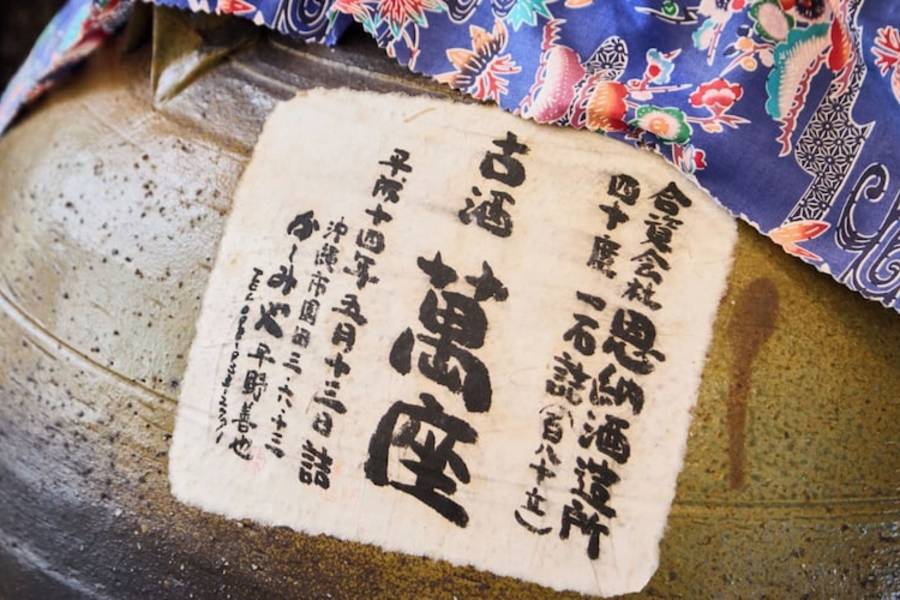 合資会社 恩納酒造所
四十度 一石詰(百八十立)
古酒 萬座
平成十四年五月十三日 詰
沖縄市園田三・六・十三
かしみや 平野善也